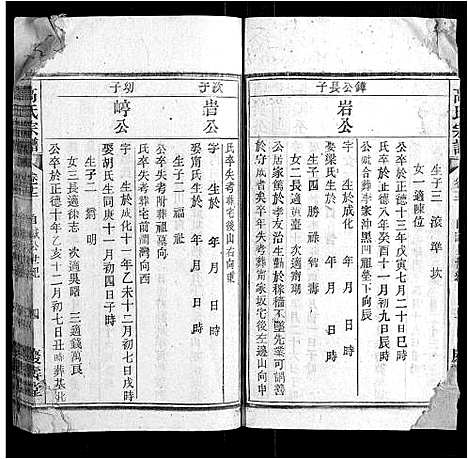 高氏宗譜
生子三 滾 準 坎
女一適陳位
公卒於正德十三年戊寅七月二十日
公歿合葬李家沖黑凹祖塋下向辰
鐘公長子
岩公
字 生於成化 年 月 日 時
娶梁氏生於正德八年癸酉十一月初九日辰時
生子四 勝 祿 智 壽
女二 長適董 次適齊瑚
公居家勤於孝友治生勤於稼穡不墜先業可謂善
於守成者卒年失考葬甯家坂宅後左邊山向申
次子
岧公
字 生於 年 月 日 時
娶甯氏生於 年 月 日 時
生子二 福 祉
氏卒失考葬宅後山右向東
幼子
崞公
氏卒失考附葬祖墓向
字 生於成化十一年乙未十二月初七日戌時
娶胡氏生同庚十一月初四日子時
氏卒失考葬宅前瀾灣向西
生子二 鶴 明
女三長適徐志 次適吳曙 三適錢萬良
公卒於正德十年乙亥十二月初七日丑時葬墓北
高氏宗譜
四
慶善堂